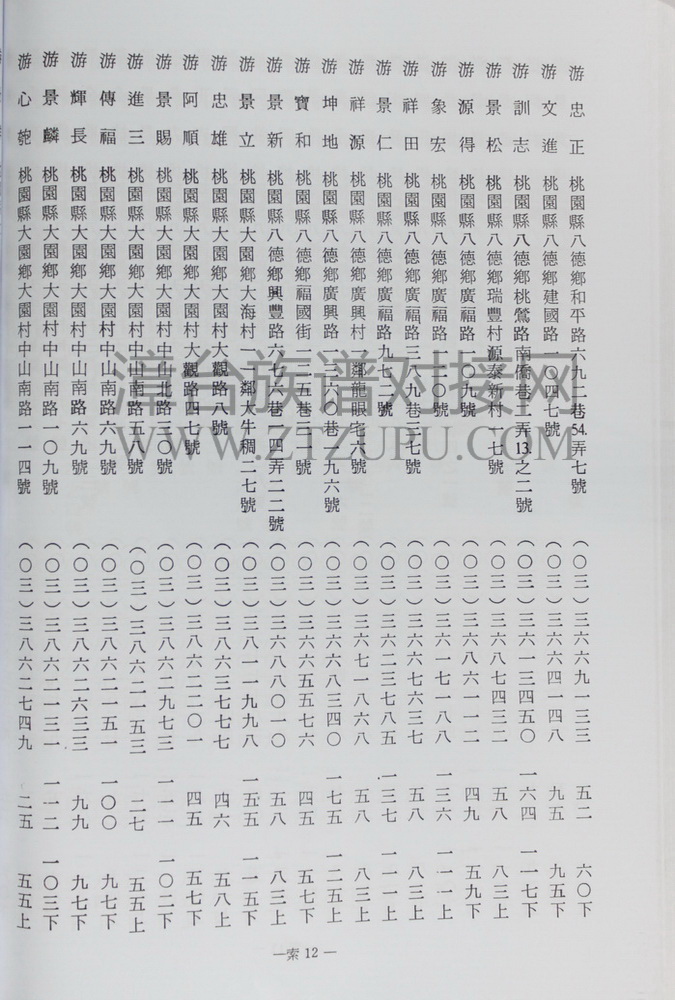 游忠正 桃園縣八德鄉和平路六九二巷54.弄七號 (〇三)三六六九一三三 五二 六〇下
游文進 桃園縣八德鄉建國路一〇四七號 (〇三)三六六四一四八 九五 九五下
游訓志 桃園縣八德鄉桃鶯路南僑巷二弄13.之二號 (〇三)三六一三四五〇 一六四 一一七下
游景松 桃園縣八德鄉瑞豐村源泰新村一七號 (〇三)三六八七四三二 五八 八三上
游源得 桃園縣八德鄉廣福路一〇九號 (〇三)三六八六一一二 四九 五九下
游象宏 桃園縣八德鄉廣福路一一〇號 (〇三)三六一七一八八 一三六 一一一上
游祥田 桃園縣八德鄉廣福路三八九巷三七號 (〇三)三六七六六三七 五八 八三上
游景仁 桃園縣八德鄉廣福路九七二號 (〇三)三六二三七八五 一三七 一一一上
游祥源 桃園縣八德鄉廣興村 鄰龍眼宅六號 (〇三)三六七一八六八 五八 八三上
游坤地 桃園縣八德鄉廣興路一三六〇巷一九六號 (〇三)三六六八三四〇 一七五 一二五上
游寶和 桃園縣八德鄉福國街三二五巷三一號 (〇三)三六六五五七六 四五 五七下
游景新 桃園縣八德鄉興豐路六七六巷一四弄二二號 (〇三)三六八八〇一〇 五八 八三上
游景立 桃園縣大園鄉大海村一一鄰大牛稠二七號 (〇三)三八一一九九八 一五五 一一五下
游忠雄 桃園縣大園鄉大園村大觀路八號 (〇三)三八六三七七七 四六 五八上
游阿順 桃園縣大園鄉大園村大觀路四七號 (〇三)三八六二二〇一 四五 五七下
游景賜 桃園縣大園鄉大園村中山北路三〇號 (〇三)三八六二九七三 一一一 一〇二下
游進三 桃園縣大園鄉大園村中山南路五八號 (〇三)三八六二一五三 二七 五五上
游傳福 桃園縣大園鄉大園村中山南路六九號 (〇三)三八六二一五一 一〇〇 九七下
游輝長 桃園縣大園鄉大園村中山南路六九號 (〇三)三八六二六三三 九九 九七下
游景麟 桃園縣大園鄉大園村中山南路一〇九號 (〇三)三八六二一三一 一一二 一〇三下
游心 桃園縣大園鄉大園村中山南路一一四號 (〇三)三八六二七四九 二五 五五上
—索12—
漳台族谱对接网
WWW.ZTZUPU.COM